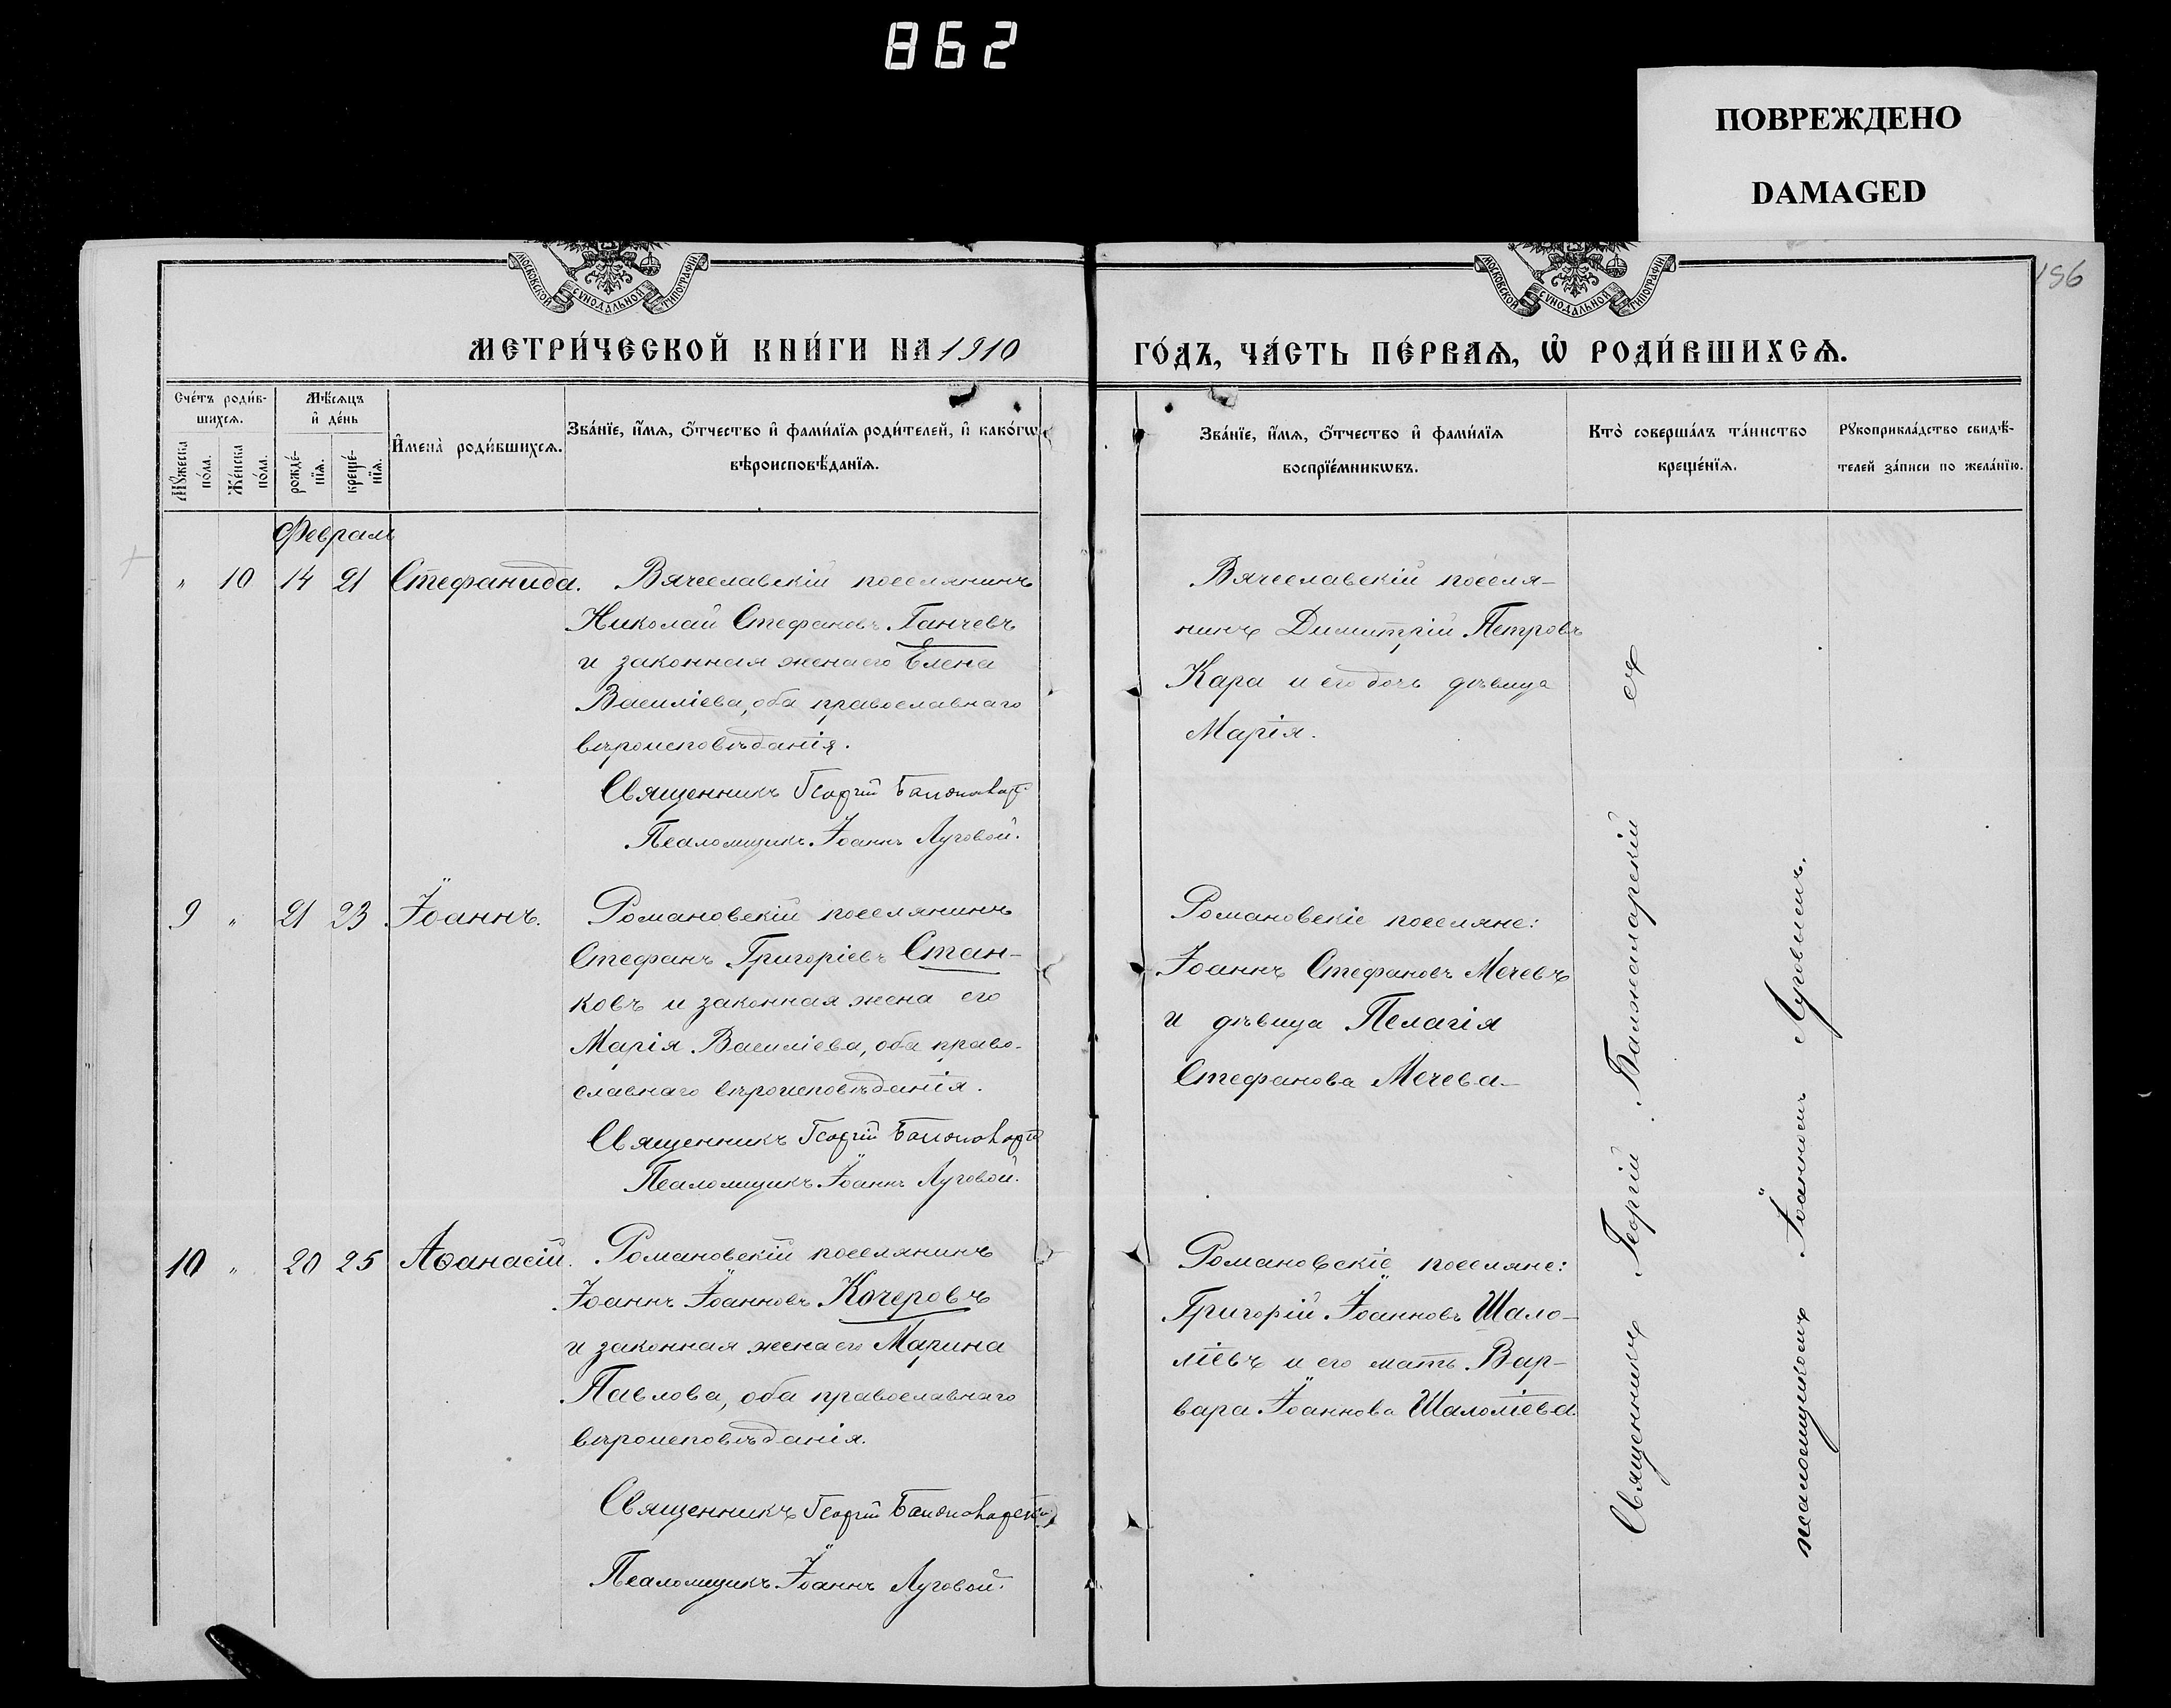 862
ПОВРЕЖДЕНО
DAMAGED
196
МОСКОВСКОЙ СѴНОДАЛЬНОЙ ТИПОГРАФІИ
МОСКОВСКОЙ СѴНОДАЛЬНОЙ ТИПОГРАФІИ
МЕТРИ́ЧЕСКОЙ КНИ́ГИ НА 1910
ГО́ДЪ, ЧА́СТЬ ПЕ́РВАѦ, Ѡ҆ РОДИ́ВШИХСѦ.
Сче́тъ роди́в-
шихсѧ.
Мꙋ́жеска
по́ла.
Же́нска
по́ла.
Мѣ́сѧцъ
и҆ де́нь
рожде́-
нїѧ.
креще́-
нїѧ.
И҆мена̀ роди́вшихсѧ.
Зва́нїе, и҆́мѧ, ѻ҆́тчество и҆ фами́лїѧ роди́телей, и҆ како́гѡ
вѣроисповѣ́данїѧ.
Зва́нїе, и҆́мѧ, ѻ҆́тчество и҆ фами́лїѧ
воспрїе́мникѡвъ.
Кто̀ соверша́лъ та́инство
креще́нїѧ.
Рꙋкоприкла́дство свидѣ́-
телей за́писи по жела́нїю.
Февраль
" 10 14 21 Стефанида.
Вячеславскій поселянинъ
Николай Стефановъ Ганчевъ
и законная жена его Елена
Василіева, оба православнаго
вѣроисповѣданія.
Священникъ Георгій
Псаломщикъ Іоаннъ Луговой.
Вячеславскій поселя-
нинъ Димитрій Петровъ
Кара и его дочь дѣвица
Марія.
9 " 21 23 Іоаннъ.
Романовскій поселянинъ
Стефанъ Григоріевъ Стан-
ковъ и законная жена его
Марія Василіева, оба право-
славнаго вѣроисповѣданія.
Священникъ Георгій
Псаломщикъ Іоаннъ Луговой.
Романовскіе поселяне:
Іоаннъ Стефановъ Мечевъ
и дѣвица Пелагія
Стефанова Мечева
10 " 20 25 Аѳанасій.
Романовскій поселянинъ
Іоаннъ Іоанновъ Кочеровъ
и законная жена его Марина
Павлова, оба православнаго
вѣроисповѣданія.
Священникъ Георгій
Псаломщикъ Іоаннъ Луговой.
Романовскіе поселяне:
Григорій Іоанновъ Шало-
міевъ и его мать Вар-
вара Іоаннова Шаломіева.
Священникъ Георгій съ
псаломщикомъ Іоанномъ Луговымъ.